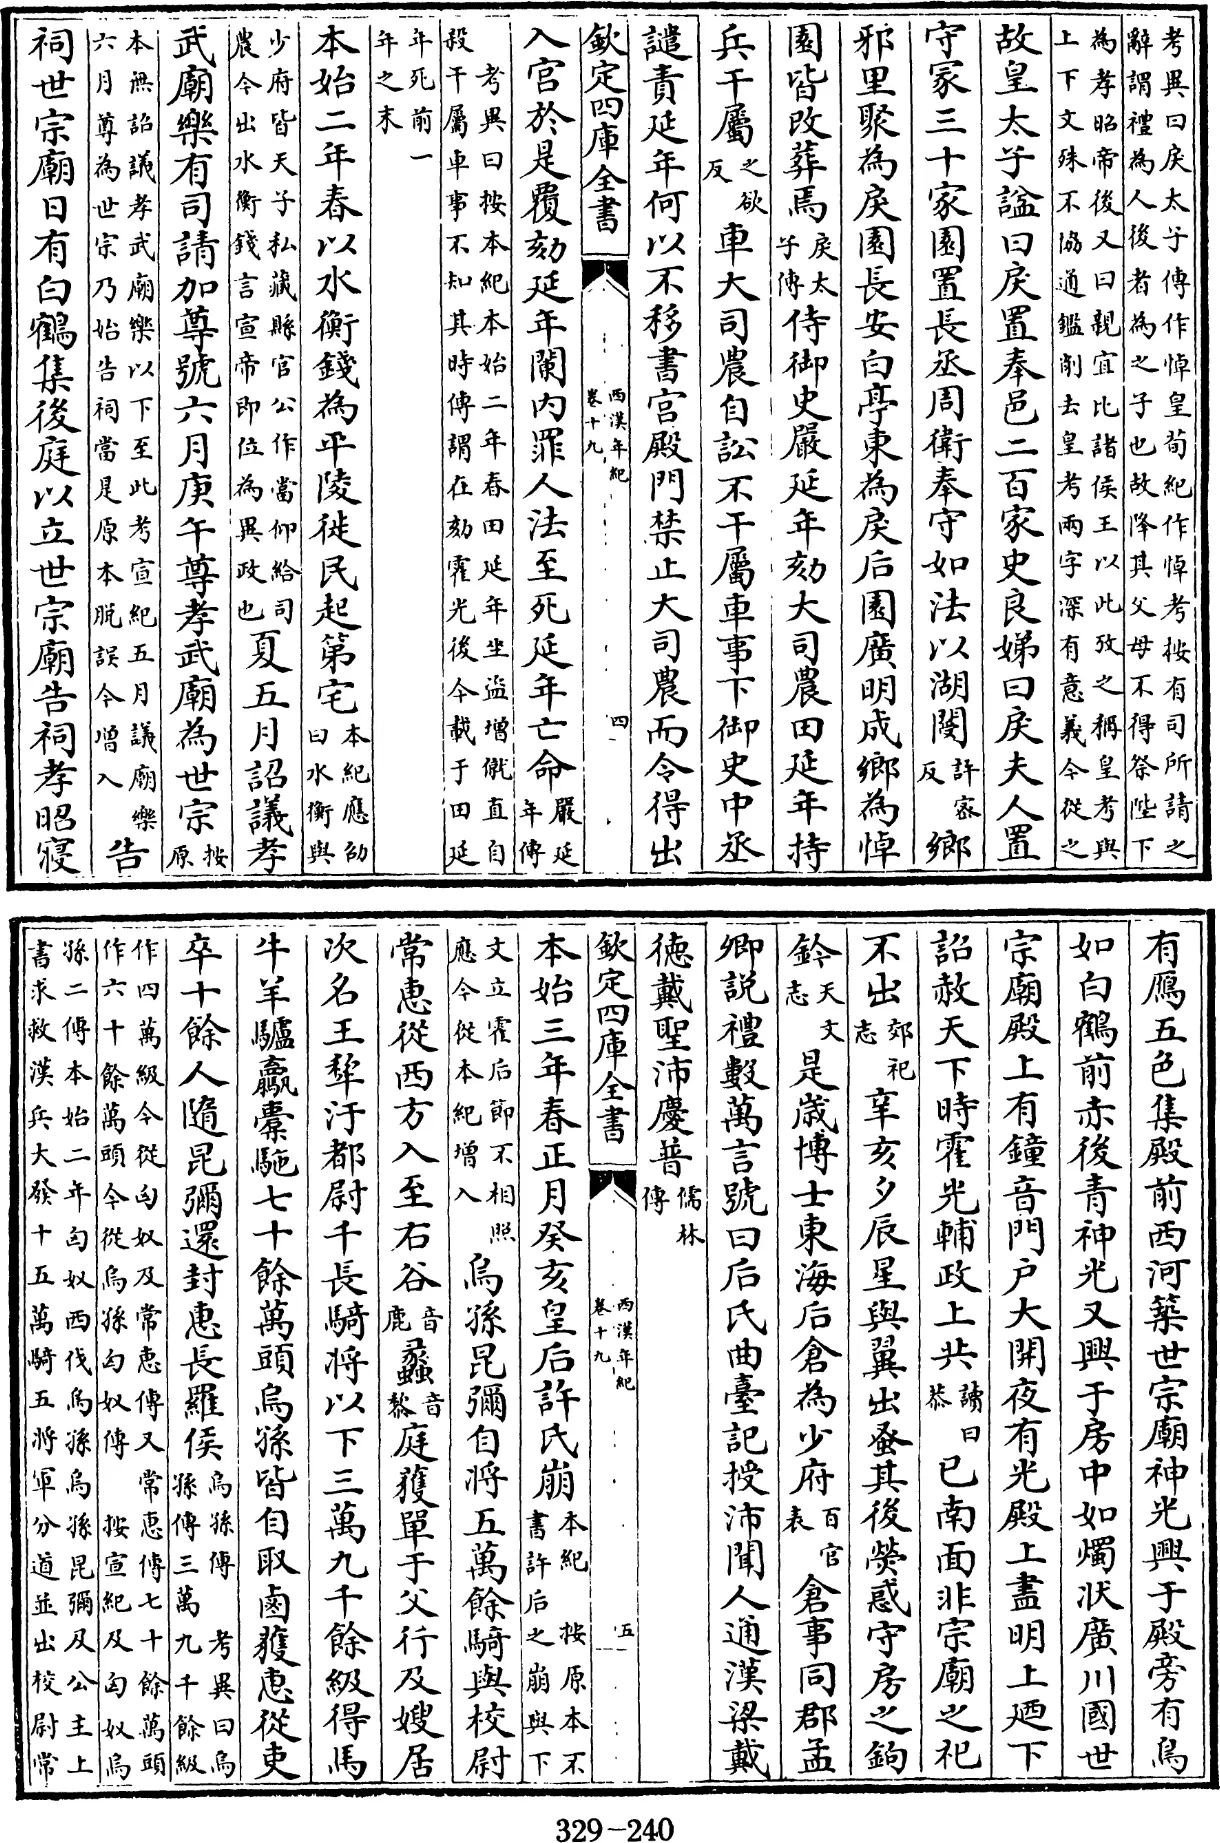 考異曰戾太子傳作悼皇荀紀作悼考按有司所請之
辭謂禮為人後者為之子也故降其父母不得祭陛下
為孝昭帝後又曰親宜比諸侯王以此攷之稱皇考與
上下文殊不協通鑑削去皇考兩字深有意義今從之
故皇太子謚曰戾置奉邑二百家史良娣曰戾夫人置
守冢三十家園置長丞周衛奉守如法以湖閿許家反鄉
邪里聚為戾園長安白亭東為戾后園廣明成鄉為悼
園皆改葬焉戾太子傳侍御史嚴延年劾大司農田延年持
兵干屬之欲反車大司農自訟不干屬車事下御史中丞
譴責延年何以不移書宮殿門禁止大司農而令得出
欽定四庫全書 西漢年紀 卷十九 四
入宮於是覆劾延年闌内罪人法至死延年亡命嚴延年傳
考異曰按本紀本始二年春田延年坐盜增僦直自
殺干屬車事不知其時傳謂在劾霍光後今載于田延
年死前一
年之末
本始二年春以水衡錢為平陵徙民起第宅本紀應劭曰水衡與
少府皆天子私藏縣官公作當仰給司
農今出水衡錢言宣帝即位為異政也夏五月詔議孝
武廟樂有司請加尊號六月庚午尊孝武廟為世宗按原
本無詔議孝武廟樂以下至此考宣紀五月議廟樂
六月尊為世宗乃始告祠當是原本脱誤今增入告
祠世宗廟日有白鶴集後庭以立世宗廟告祠孝昭寢
有鴈五色集殿前西河築世宗廟神光興于殿旁有鳥
如白鶴前赤後青神光又興于房中如燭狀廣川國世
宗廟殿上有鐘音門户大開夜有光殿上盡明上廼下
詔赦天下時霍光輔政上共讀曰恭已南面非宗廟之祀
不出郊祀志辛亥夕辰星與翼出蚤其後熒惑守房之鉤
鈐天文志是歲博士東海后倉為少府百官表倉事同郡孟
卿説禮數萬言號曰后氏曲臺記授沛聞人通漢梁戴
德戴聖沛慶普儒林傳
欽定四庫全書 西漢年紀 卷十九 五
本始三年春正月癸亥皇后許氏崩本紀 按原本不書許后之崩與下
文立霍后節不相照
應今從本紀增入烏孫昆彌自將五萬餘騎與校尉
常惠從西方入至右谷音鹿蠡音黎庭獲單于父行及嫂居
次名王犂汙都尉千長騎將以下三萬九千餘級得馬
牛羊驢驘橐駞七十餘萬頭烏孫皆自取鹵獲惠從吏
卒十餘人隨昆彌還封惠長羅侯烏孫傳 考異曰烏孫傳三萬九千餘級
作四萬級今從匈奴及常惠傳又常惠傳七十餘萬頭
作六十餘萬頭今從烏孫匈奴傳 按宣紀及匈奴烏
孫二傳本始二年匈奴西伐烏孫烏孫昆彌及公主上
書求救漢兵大發十五萬騎五將軍分道並出校尉常
329-240